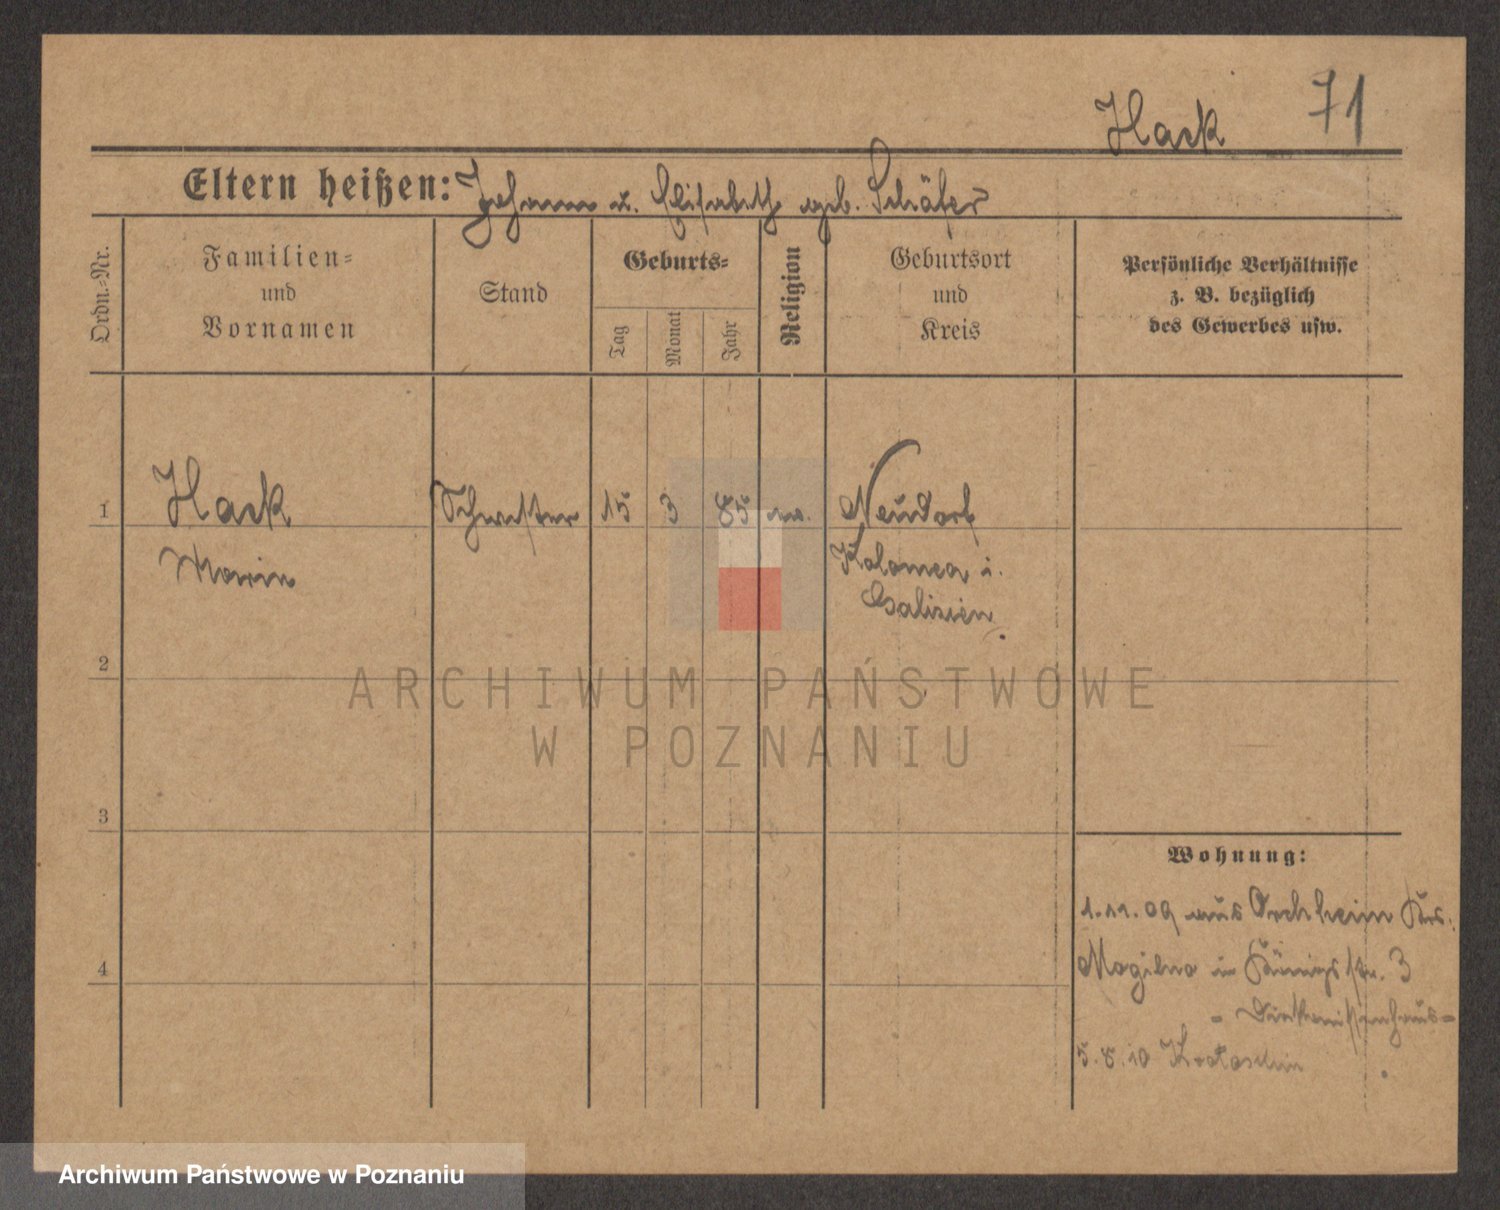 Hack 71
Eltern heißen: Johann u. Elisabeth geb. Schäfer
Ordn.-Nr.
Familien-
und
Vornamen
Stand
Geburts-
Tag
Monat
Jahr
Religion
Geburtsort
und
Kreis
Persönliche Verhältnisse
z. B. bezüglich
des Gewerbes usw.
1 Hack Schwester 15 3 85 ev. Neudorf
Marie Kolomea i.
Galizien
2
3
4
Wohnung:
1.11.09 aus Orchheim Krs.
Mogilno in Königstr. 3
- Diakonissenhaus -
5.8.10 Krotoschin
ARCHIWUM PAŃSTWOWE
W POZNANIU
Archiwum Państwowe w Poznaniu